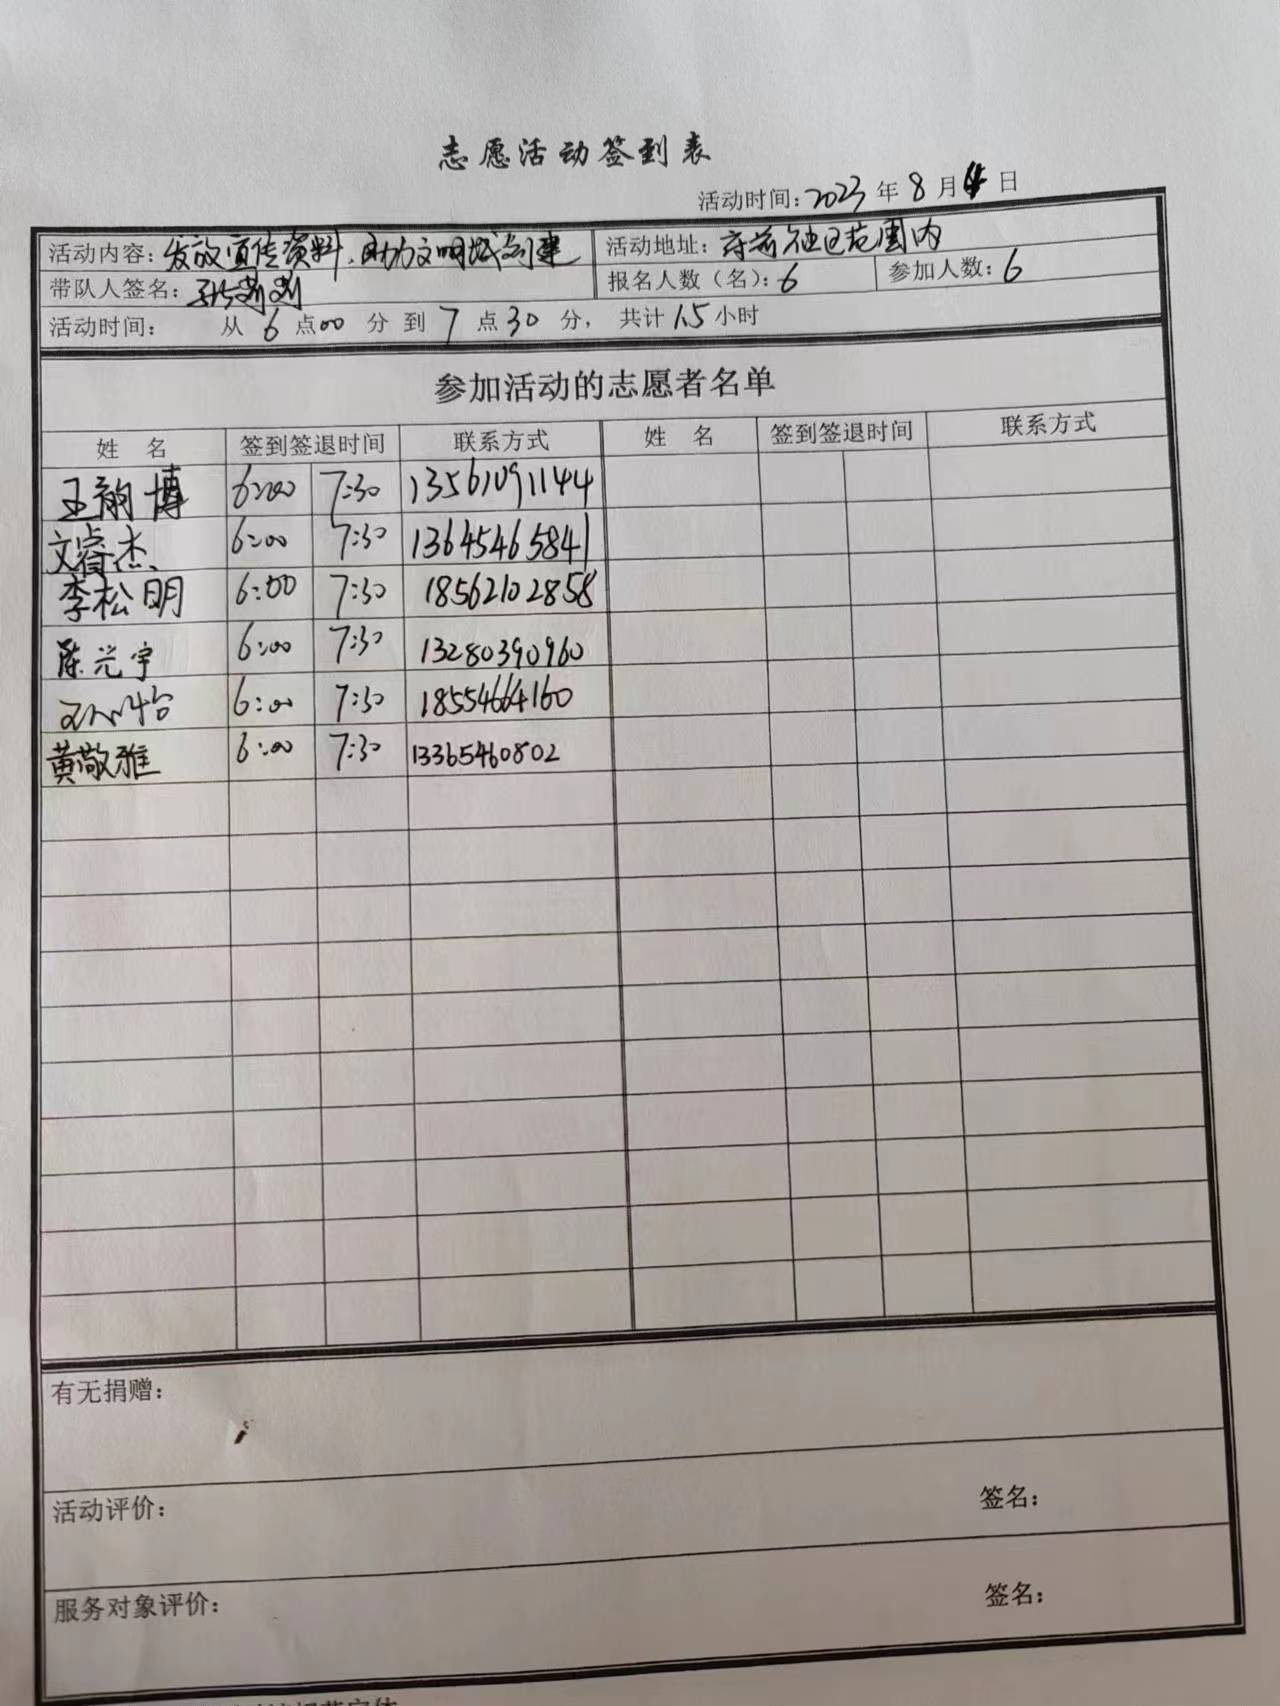 志愿活动签到表
活动时间：2023 年 8 月 日
活动内容：发放宣传资料，助力文明城创建 活动地址：府前社区范围内
带队人签名： 报名人数（名）：6 参加人数：6
活动时间： 从 6 点 00 分 到 7 点 30 分， 共计 1.5 小时
参加活动的志愿者名单
姓 名 签到签退时间 联系方式 姓 名 签到签退时间 联系方式
王 博 6:00 7:30 13561091144
文睿杰 6:00 7:30 13645465841
李松明 6:00 7:30 18562102858
陈光宇 6:00 7:30 13280390960
6:00 7:30 18554664160
黄敬雅 6:00 7:30 13365460802
有无捐赠：
活动评价： 签名：
服务对象评价： 签名：